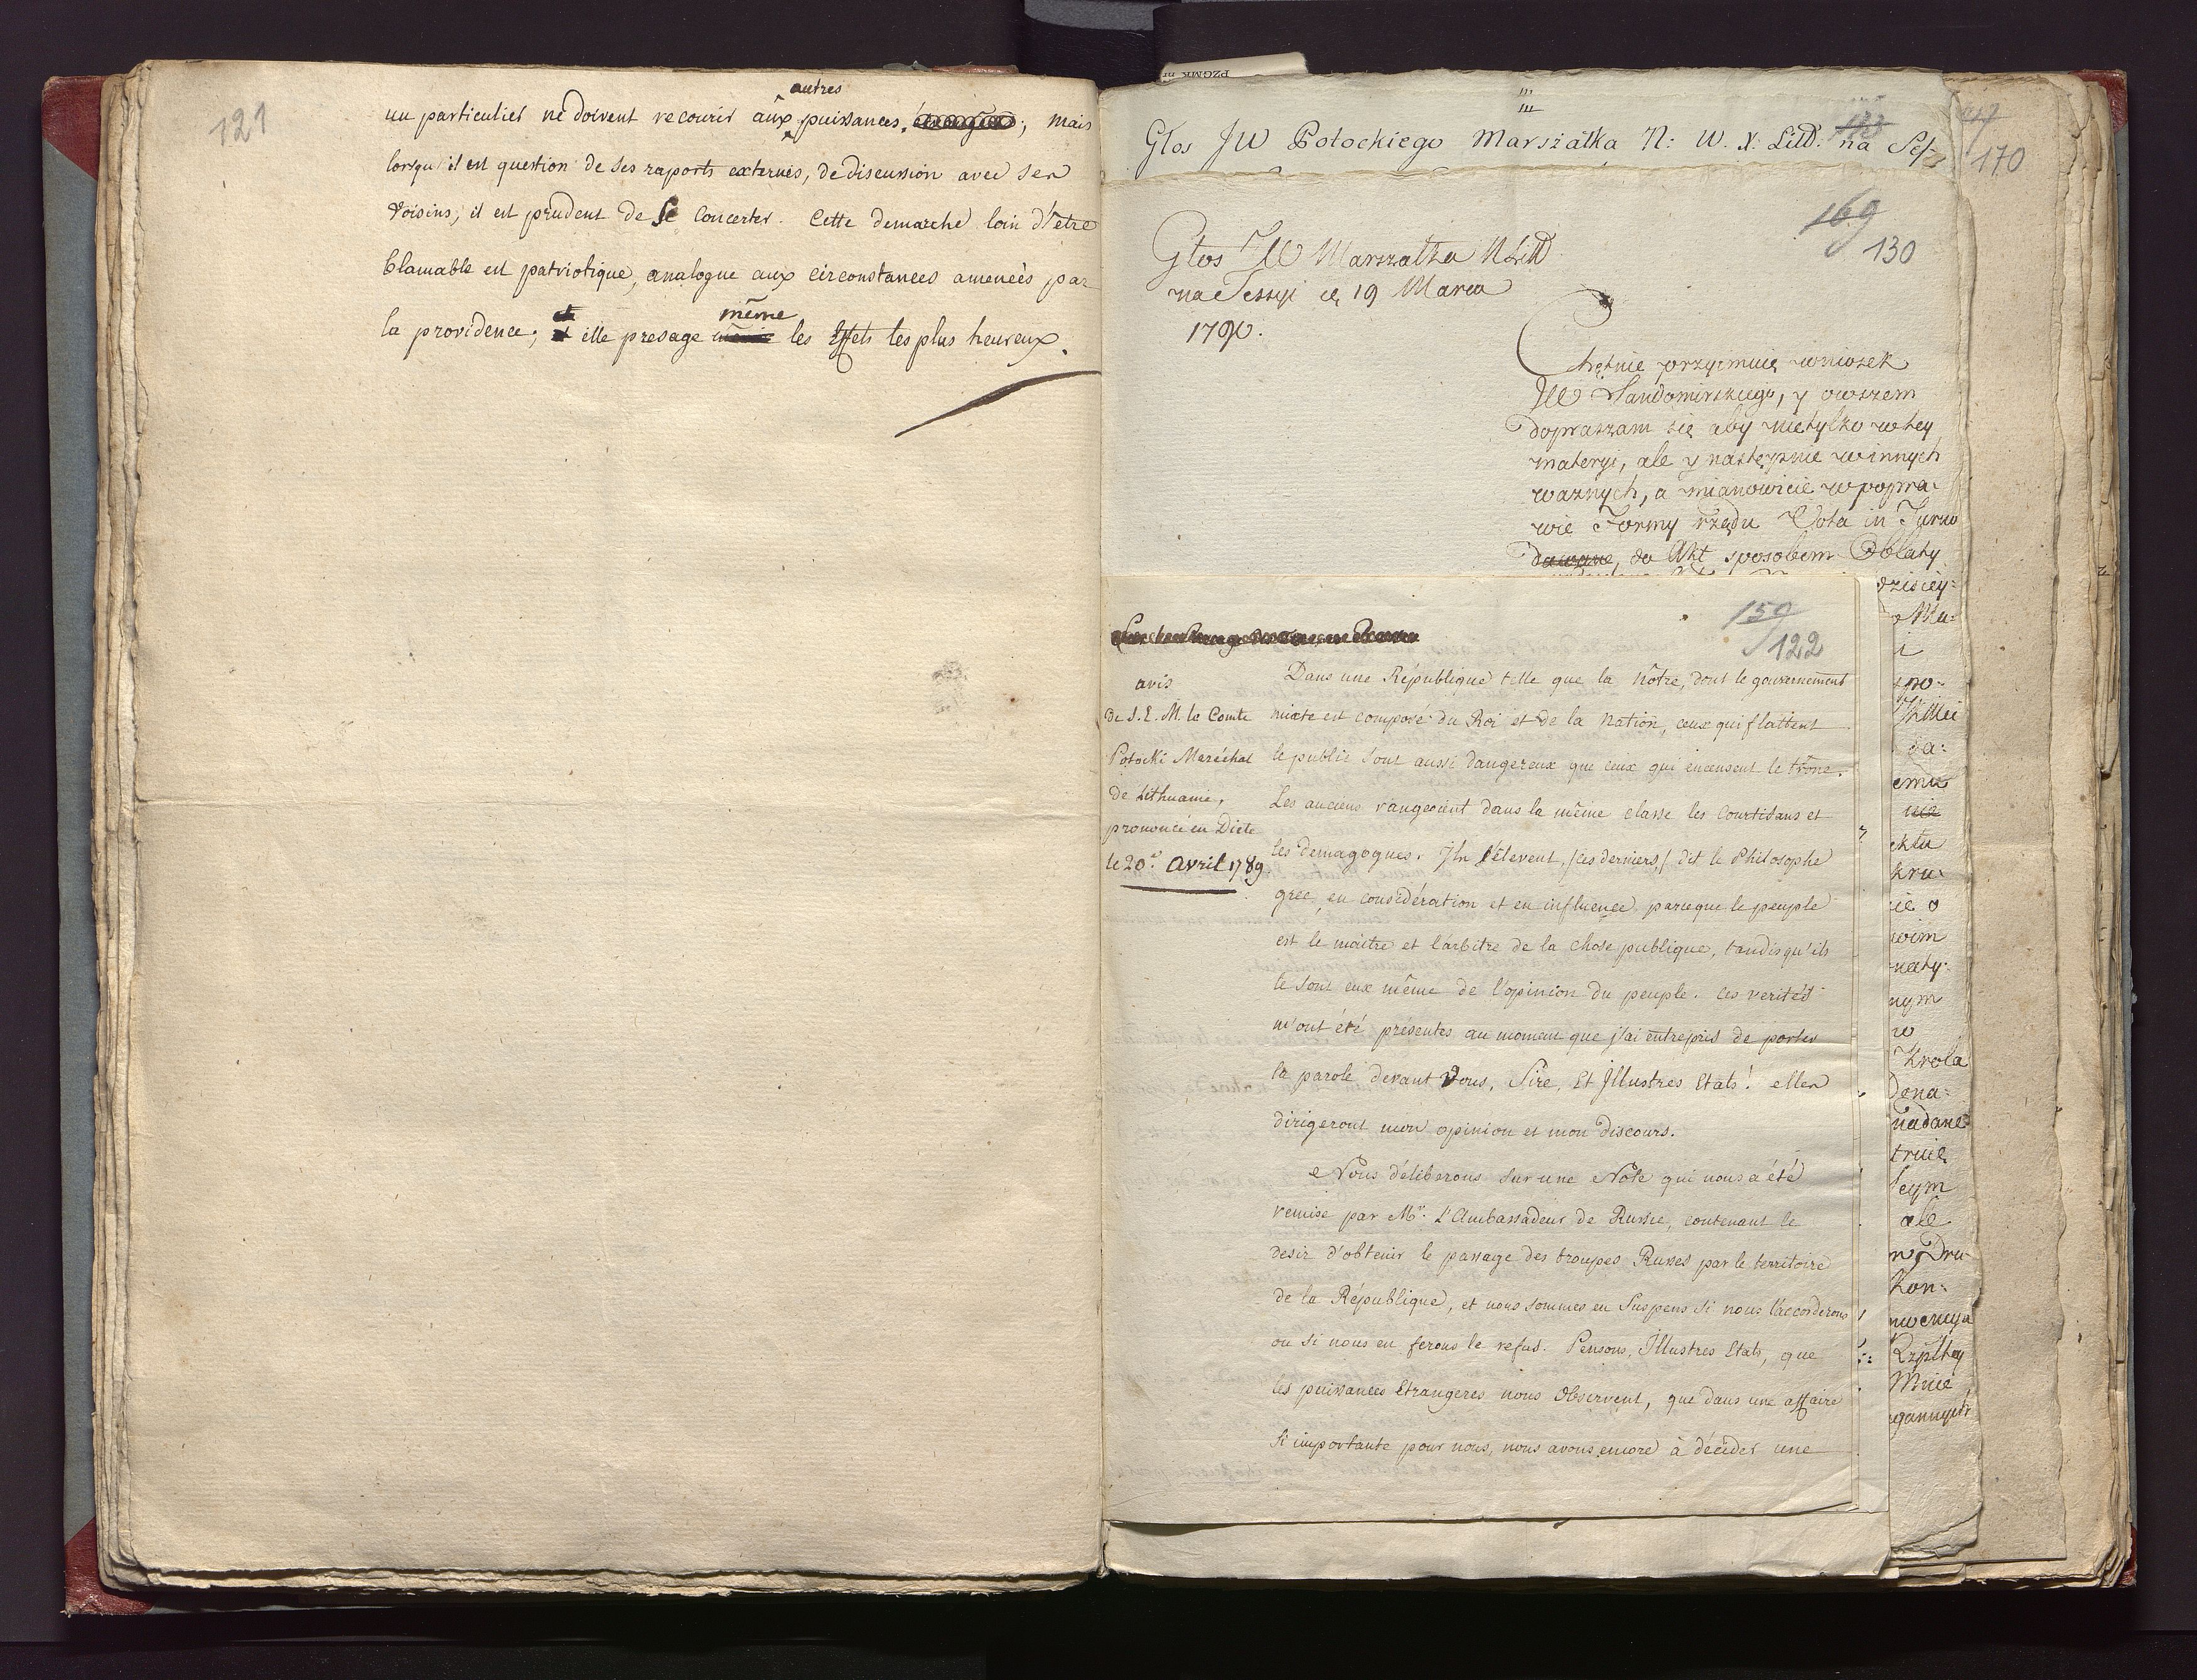 121
autres
un particulier ne doivent recourir aux puissances, ; mais
lorsqu'il est question de ses raports externes, de discussion avec ses
voisins, il est prudent de se concerter. Cette demarche loin d'être
blamable est patriotique, analogue aux circonstances amenées par
même
la providence; et elle presage les Effets les plus heureux.
PZGMK nr
Głos JW Potockiego Marszałka N: W. X: Litt: na Sess
170
169
130
Głos JW Marszałka N Litt
na Sessyi d. 19 Marca
1790.
Chętnie przyimuię wniosek
JW Sandomirskiego, y owszem
dopraszam się aby nietylko w tey
materyi, ale y następnie w innych
ważnych, a mianowicie w popra-
wie Formy rządu Vota in Turno
dawane, do Akt sposobem Oblaty
159
122
avis
de S. E. M. le Comte
Potocki Maréchal
de Lithuanie,
prononcé en Diete
le 20. Avril 1789
Dans une République telle que la nôtre, dont le gouvernement
mixte est composé du Roi et de la nation, ceux qui flattent
le public sont aussi dangereux que ceux qui encensent le trône.
Les anciens rangeoient dans la même classe les Courtisans et
les demagogues. Ils s'élevent, /ces derniers/ dit le Philosophe
grec, en considération et en influence, parceque le peuple
est le maitre et l'arbitre de la chose publique, tandisqu'ils
le sont eux même de l'opinion du peuple. Ces verités
m'ont été présentes au moment que j'ai entrepris de porter
la parole devant Vous, Sire, Et Illustres Etats! elles
dirigeront mon opinion et mon discours.
Nous déliberons sur une Note qui nous a été
remise par Mr. l'Ambassadeur de Russie, contenant le
desir d'obtenir le passage des troupes Russes par le territoire
de la République, et nous sommes en suspens si nous l'accorderons
ou si nous en ferons le refus. Pensons, Illustres Etats, que
les puissances Etrangeres nous observent, que dans une affaire
si importante pour nous, nous avons encore à décider une
dzisiey:
i
da:
emu
kru:
ie o
nym
w
Krola
Dona:
nadane
eym
ale
w Dru-
Kon:
Rzpltey